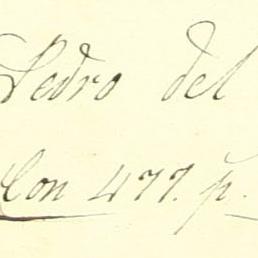 Pedro del
Con 477. p.